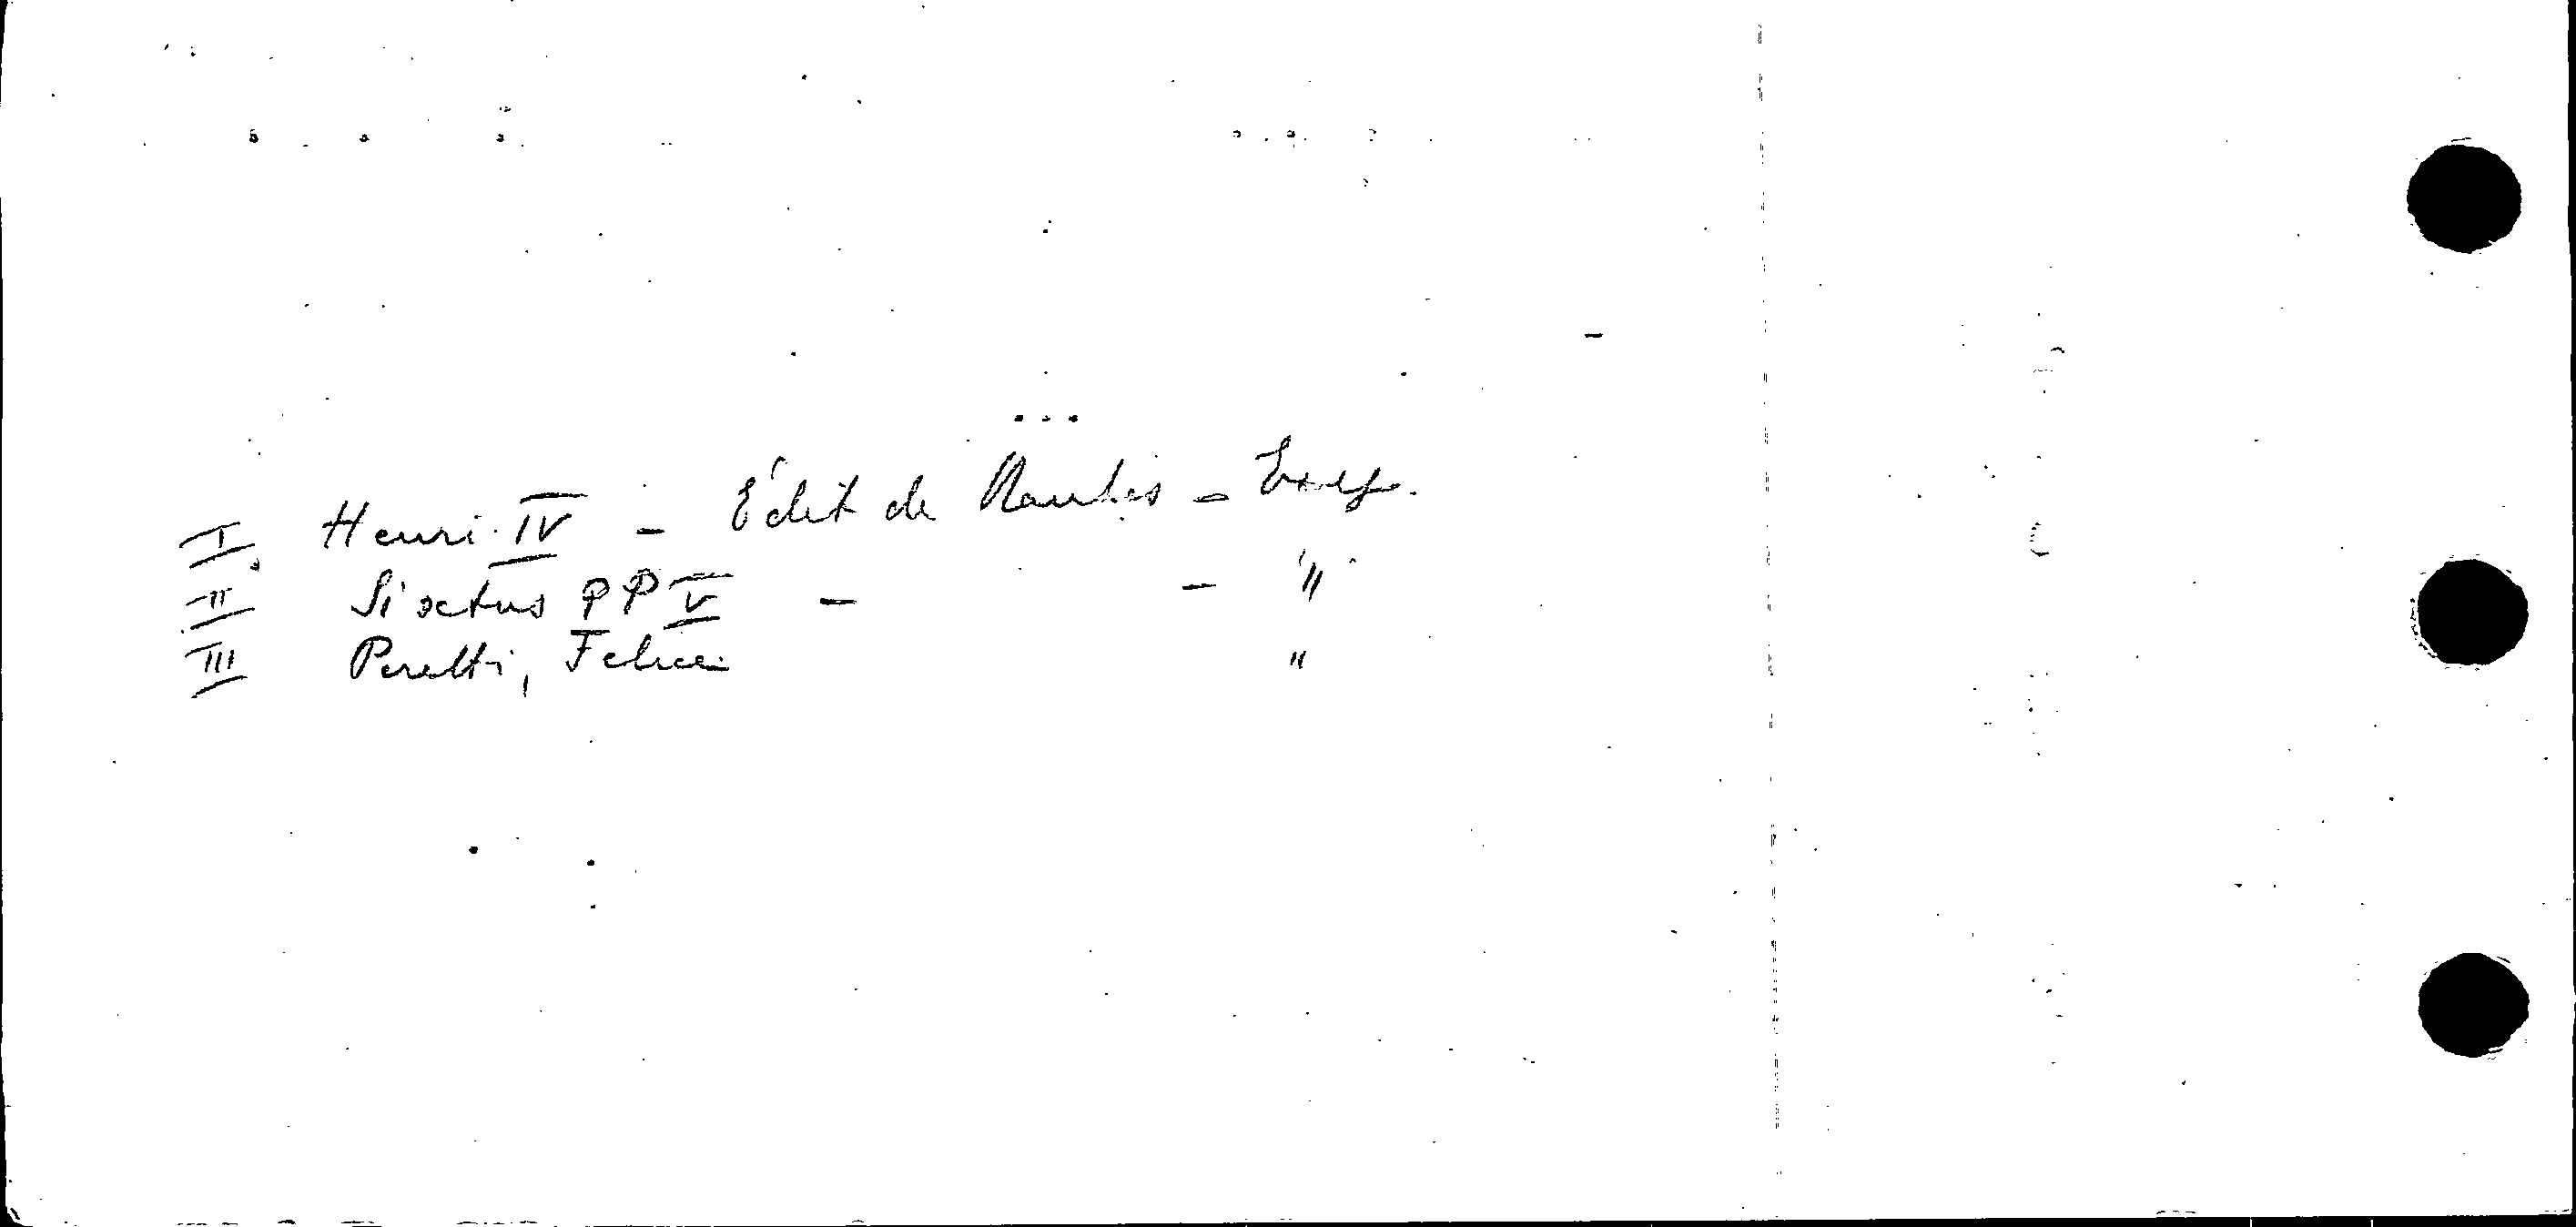 I. Henri IV - Édit de Nantes -
II Sixtus PP V - - "
III Peretti, Felice "